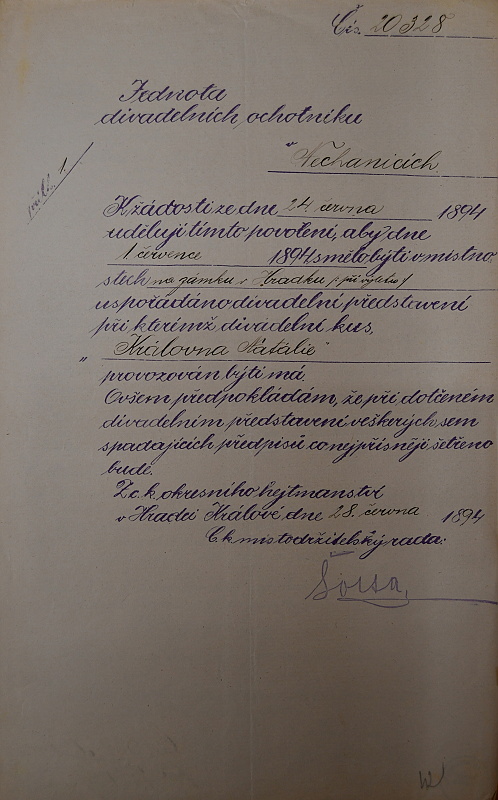 Čís. 20328
Jednota
divadelních ochotníků
v Nechanicích.
K žádosti ze dne 24. června 1894
uděluji tímto povolení, aby dne
1 července 1894 smělo býti v místno-
stech na zámku v Hrádku (při výletu)
uspořádáno divadelní představení
při kterémž divadelní kus.
„Královna Natalie"
provozován býti má.
Ovšem předpokládám, že při dotčeném
divadelním představení veškerých sem
spadajících předpisů co nejpřísněji šetřeno
bude.
Z c. k. okresního hejtmanství
v Hradci Králové, dne 28. června 1894
C. k. místodržitelský rada: